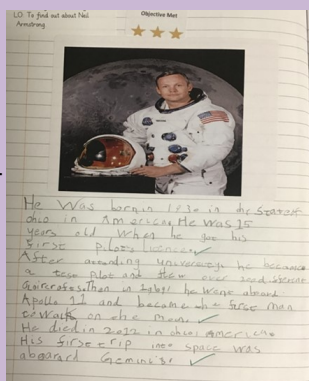 LO: To find out about Neil
Armstrong
Objective Met
He was born in 1930 in the State of
ohio in American He was 15
years old When he got his
first pilots
After university he became
a test pilot and flew over
Then in he went aboard
Apollo 11 and became the first man
to walk on the moon.
He died in 2012 in ohio America
His first trip into space was
aboard Gemini 8